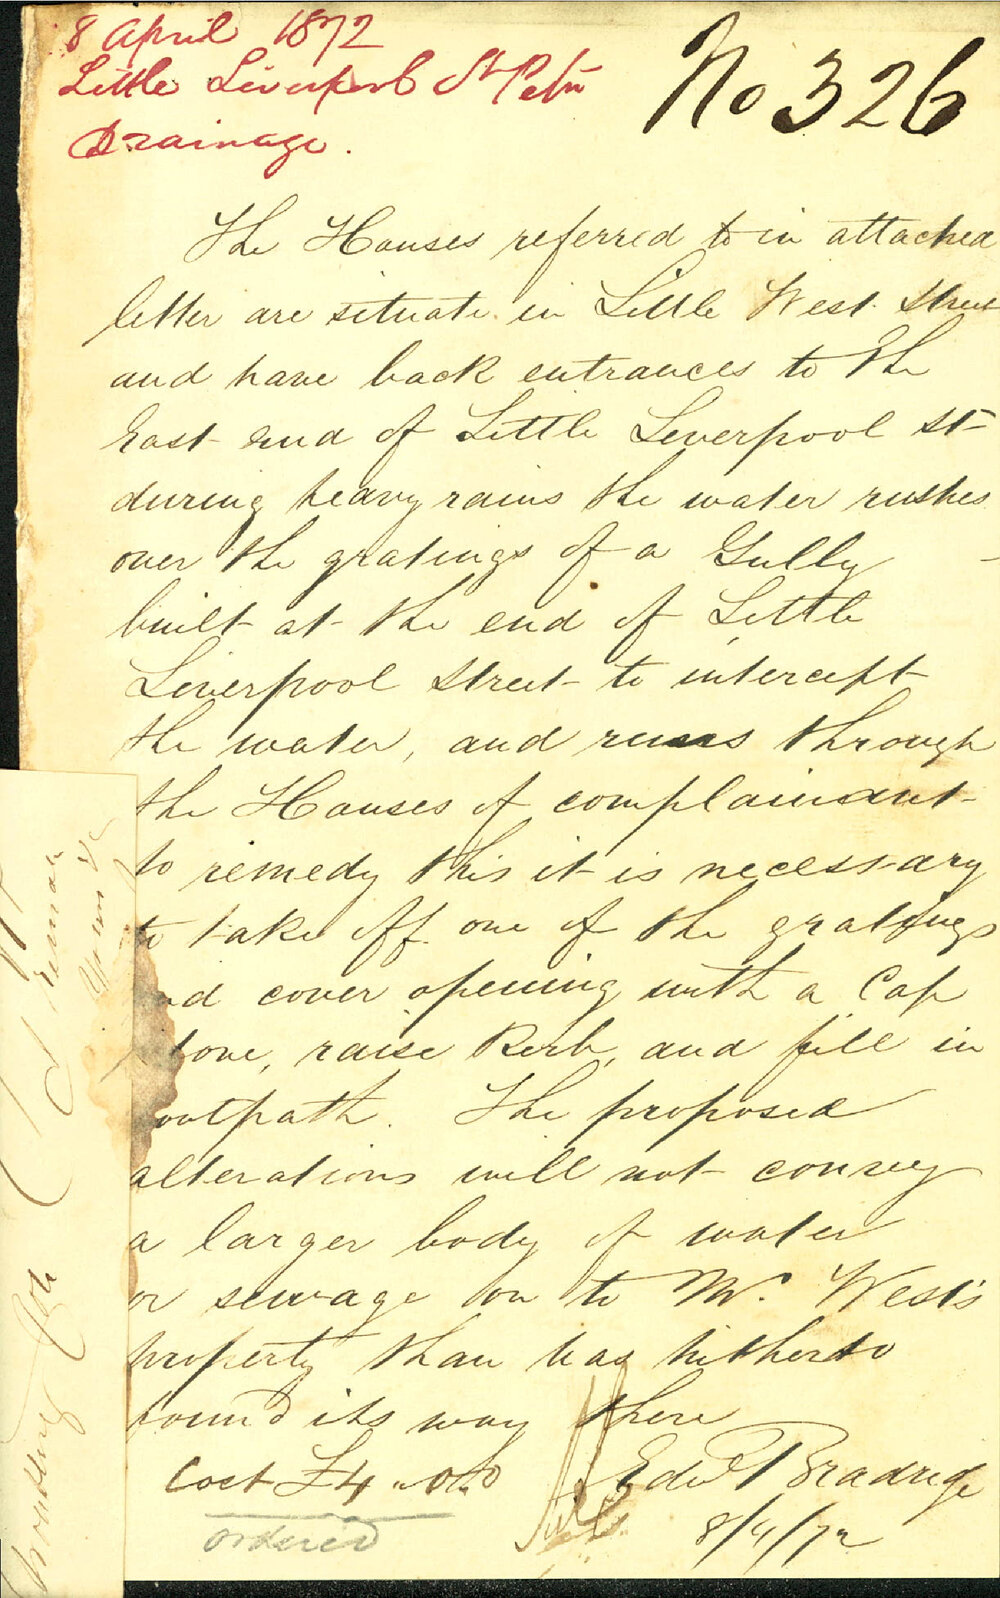 8 April 1872
Little Liverpool St Petn
Drainage.
No 326
The Houses referred to in attached
letter are situate in Little West Street
and have back entrances to the
East end of Little Liverpool St
during heavy rains the water rushes
over the gratings of a Gully
built at the end of Little
Liverpool Street to intercept
the water, and runs through
the Houses of complainant
to remedy this it is necessary
to take off one of the gratings
nd cover opening with a Cap
tone, raise Kerb, and fill in
ootpath. The proposed
alterations will not convey
a larger body of water
or sewage on to Mr. West's
property than has hitherto
found its way there
Cost £4.0.0
Edwd Bradridge
8/4/72
ordered